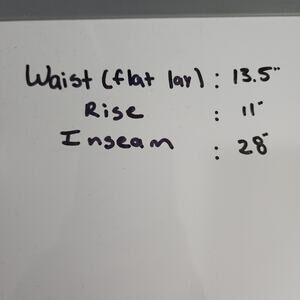 Waist (flat lay) : 13.5"
Rise : 11"
Inseam : 28"